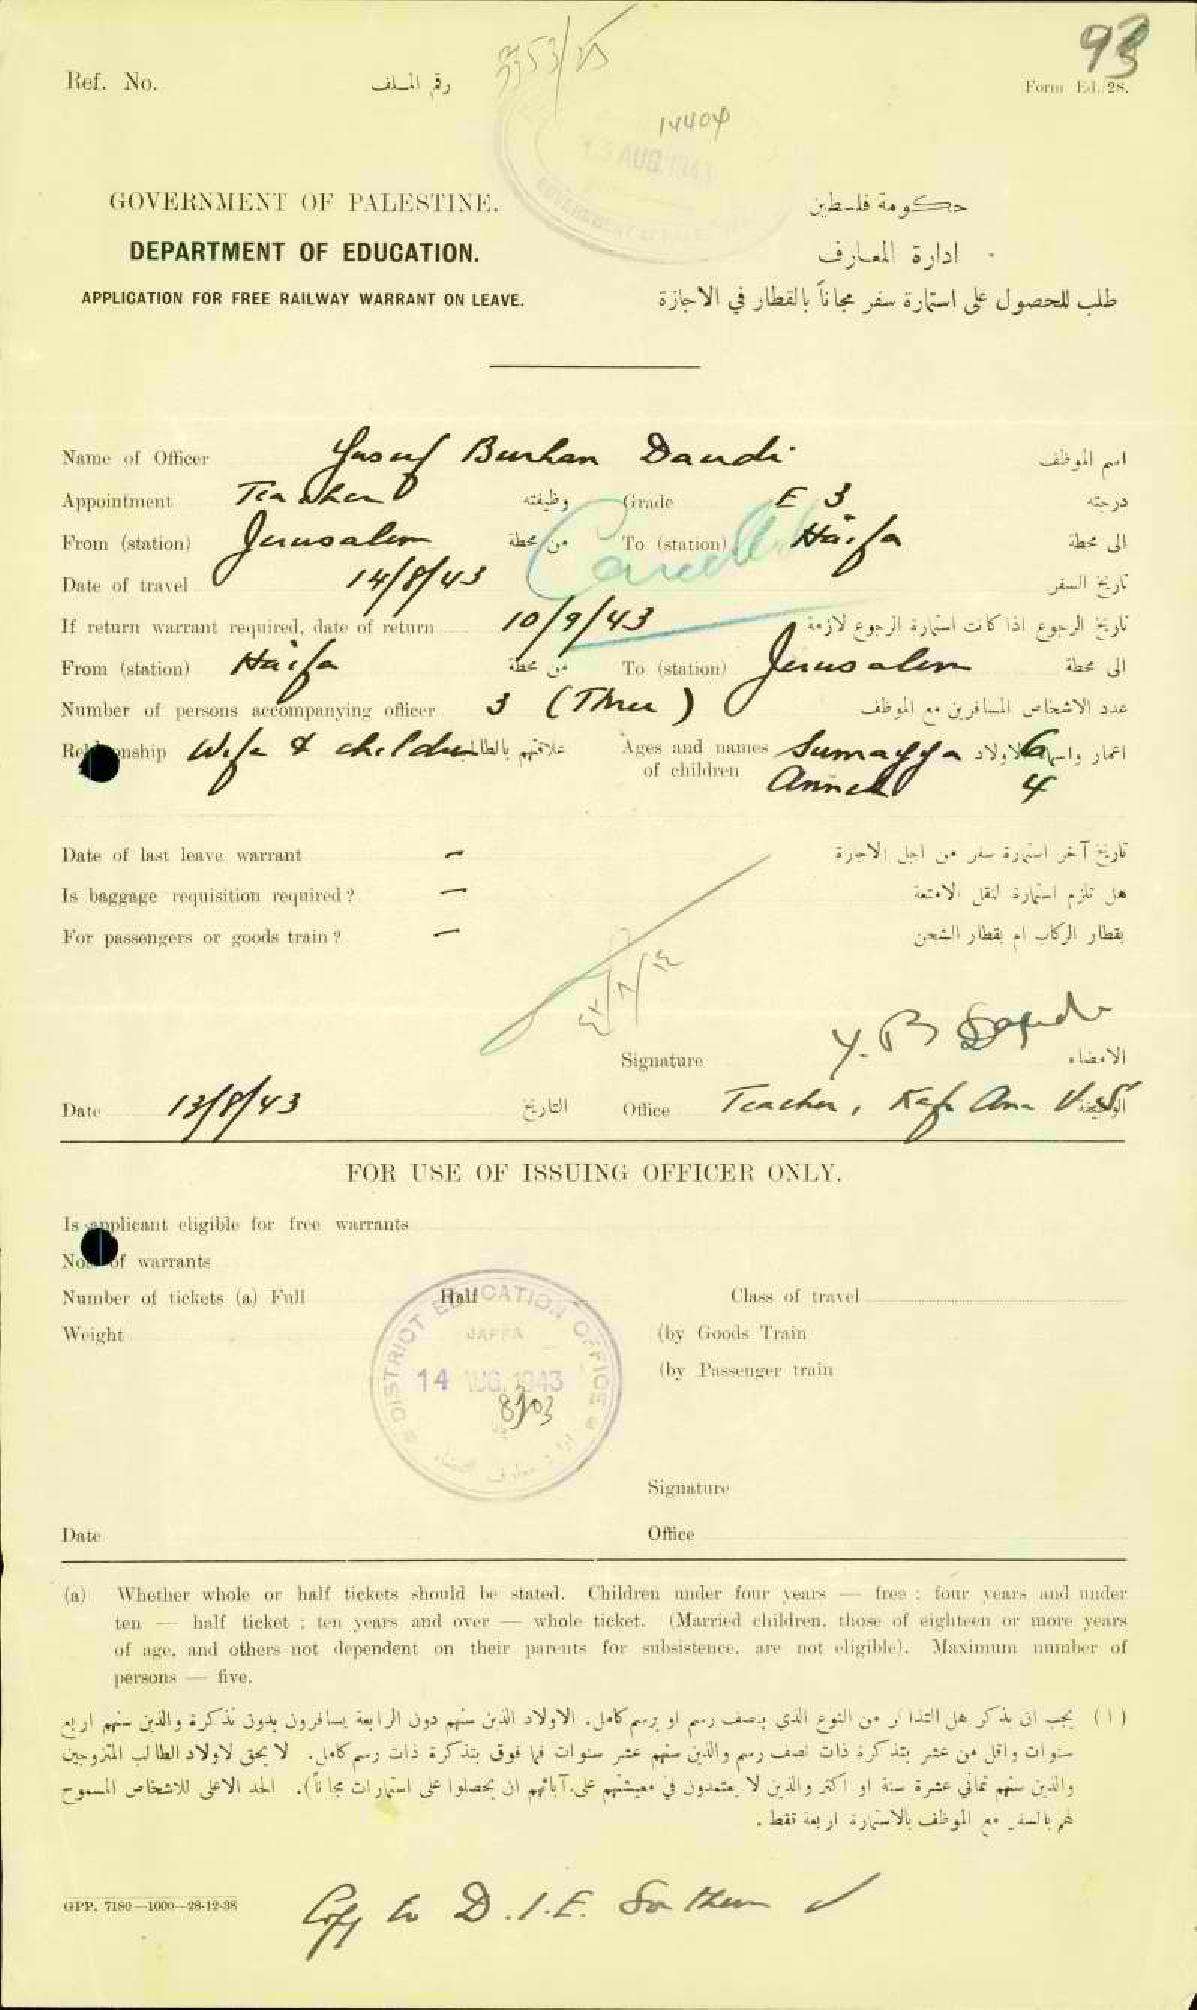 93
٥٣/٢٥
Ref. No. رقم الملف
Form Ed. 28.
14404
13 AUG. 1943
GOVERNMENT OF PALESTINE. حكومة فلسطين
DEPARTMENT OF EDUCATION. ادارة المعارف
APPLICATION FOR FREE RAILWAY WARRANT ON LEAVE. طلب للحصول على استمارة سفر مجاناً بالقطار في الاجازة
Name of Officer Yusuf Burhan Daudi اسم الموظف
Appointment Teacher وظيفته Grade E 3 درجته
From (station) Jerusalem من محطة To (station) Haifa الى محطة
Cancelled
Date of travel 14/8/43 تاريخ السفر
If return warrant required, date of return 10/9/43 تاريخ الرجوع اذا كانت استمارة الرجوع لازمة
From (station) Haifa من محطة To (station) Jerusalem الى محطة
Number of persons accompanying officer 3 (Three) عدد الاشخاص المسافرين مع الموظف
Relationship Wife & children علاقتهم بالطالب Ages and names of children Sumayya 6 اعمار واسماء الاولاد
4
Date of last leave warrant – تاريخ آخر استمارة سفر من اجل الاجازة
Is baggage requisition required? – هل تلزم استمارة لنقل الامتعة
For passengers or goods train? – بقطار الركاب ام بقطار الشحن
١٤/٨/٤٣
Signature Y. B Daudi الامضاء
Date 13/8/43 التاريخ Office Teacher, Kafr Ana V.S. الوظيفة
FOR USE OF ISSUING OFFICER ONLY.
Is applicant eligible for free warrants
Nos. of warrants
Number of tickets (a) Full Half Class of travel
Weight (by Goods Train
(by Passenger train
DISTRICT EDUCATION OFFICE
JAFFA
14 AUG. 1943
8103
Signature
Date Office
(a) Whether whole or half tickets should be stated. Children under four years — free : four years and under
ten — half ticket ; ten years and over — whole ticket. (Married children, those of eighteen or more years
of age, and others not dependent on their parents for subsistence, are not eligible). Maximum number of
persons — five.
(١) يجب ان يذكر هل التذاكر من النوع الذي بنصف رسم او برسم كامل. الاولاد الذين سنهم دون الرابعة يسافرون بدون تذكرة والذين سنهم اربع
سنوات واقل من عشر بتذكرة ذات نصف رسم والذين سنهم عشر سنوات فما فوق بتذكرة ذات رسم كامل. لا يحق لاولاد الطالب المتزوجين
والذين سنهم ثماني عشرة سنة او اكثر والذين لا يعتمدون في معيشتهم على آبائهم ان يحصلوا على استمارات مجاناً). الحد الاعلى للاشخاص المسموح
لهم بالسفر مع الموظف بالاستمارة اربعة فقط.
GPP. 7180—1000—28-12-38
Copy to D.I.E. Southern